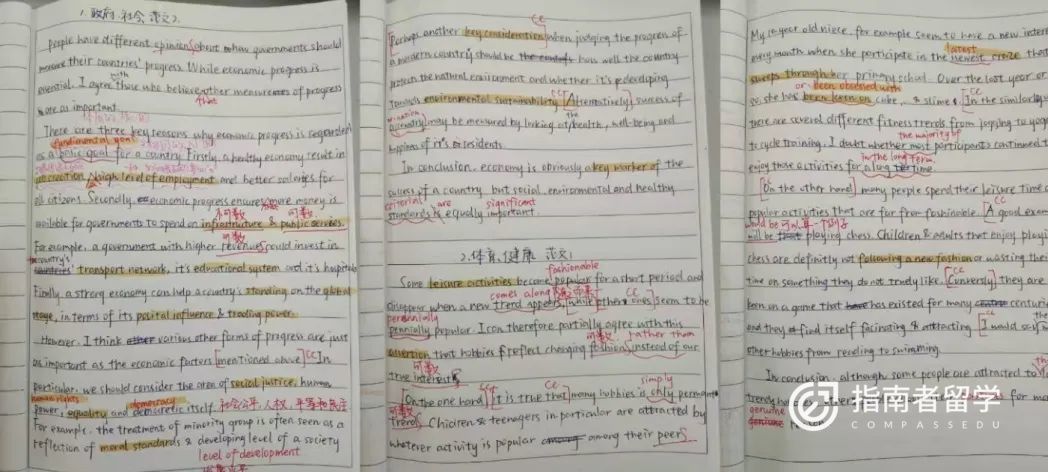 1. 政府.社会 范文2.
people have different opinions about how governments should
measure their countries' progress. While economic progress is
essential, I agree with those who believe that other measures of progress
are as important.
There are three key reasons why economic progress is regarded
fundimental goal
as a for a country. Firstly, a healthy economy result in
job creation, high level of employment and better salaries for
all citizens. Secondly, economic progress ensures more money is
不可数 可数
available for governments to spend on infrastructure & public services.
可数
For example, a government with higher revenues could invest in
country's
transport network, it's educational system and it's hospitals
Finally a strong economy can help a country's standing on the global
stage, in terms of its influence & trading power.
However, I think various other forms of progress are just
as important as the economic factors [mentioned above] CC In
particular, we should consider the area of social justice, human
human rights democracy
power, equality and itself. 社会公平,人权,平等和民主
For example, the treatment of minority group is often seen as a
reflection of moral standards & developing level of a society
level of development
CC
Perhaps another key consideration when judging the progress of
a modern country should be how well the country
protects the natural environment and whether it's
towards environmental sustainability. CC [Alternatively] success of
a country may be measured by looking at the health, well-being and
happiness of it's residents.
In conclusion, economy is obviously a key marker of the
success of a country but social, and healthy
are significant
standards is equally important.
2.体育.健康 范文1
fashionable
Some leisure activities become popular for a short period and
comes along CC
disappear when a new trend appears [while others] seem to be
perennially
popular. I can therefore partially agree with this
可数 rather than
assertion that hobbies reflect changing fashions instead of our
可数
true interests
CC CC simply
[On the one hand] [it is true that] many hobbies is only permanent
可数
trends. Children & teenagers in particular are attracted by
whatever activity is popular among their peers
My 10 year old niece, for example seem to have a new interest
latest
every month when she participate in the newest craze that
sweeps through her primary school. Over the last year or
or been obsessed with
so, she has been keen on cube, & slime. [In the similarly
there are several different fitness trends, from jogging to yoga
the majority of
to cycle training. I doubt whether most participants continued to
in the long term.
enjoy those activities for a long time.
CC
[On the other hand] many people spend their leisure time
popular activities that are far from fashionable. [A good exam
would be 可以算一个例子
will be playing chess. Children & adults that enjoy playi
chess are definitly not following a new fashion or wasting their
CC
time on something they do not truely like. [Conversely] they are
keen on a game that has existed for many centuries
and they find itself facinating & attracting. [I would say
other hobbies from reading to swimming.
In conclusion, although some people are attracted to
trendy
genuine
指南者留学
COMPASSEDU